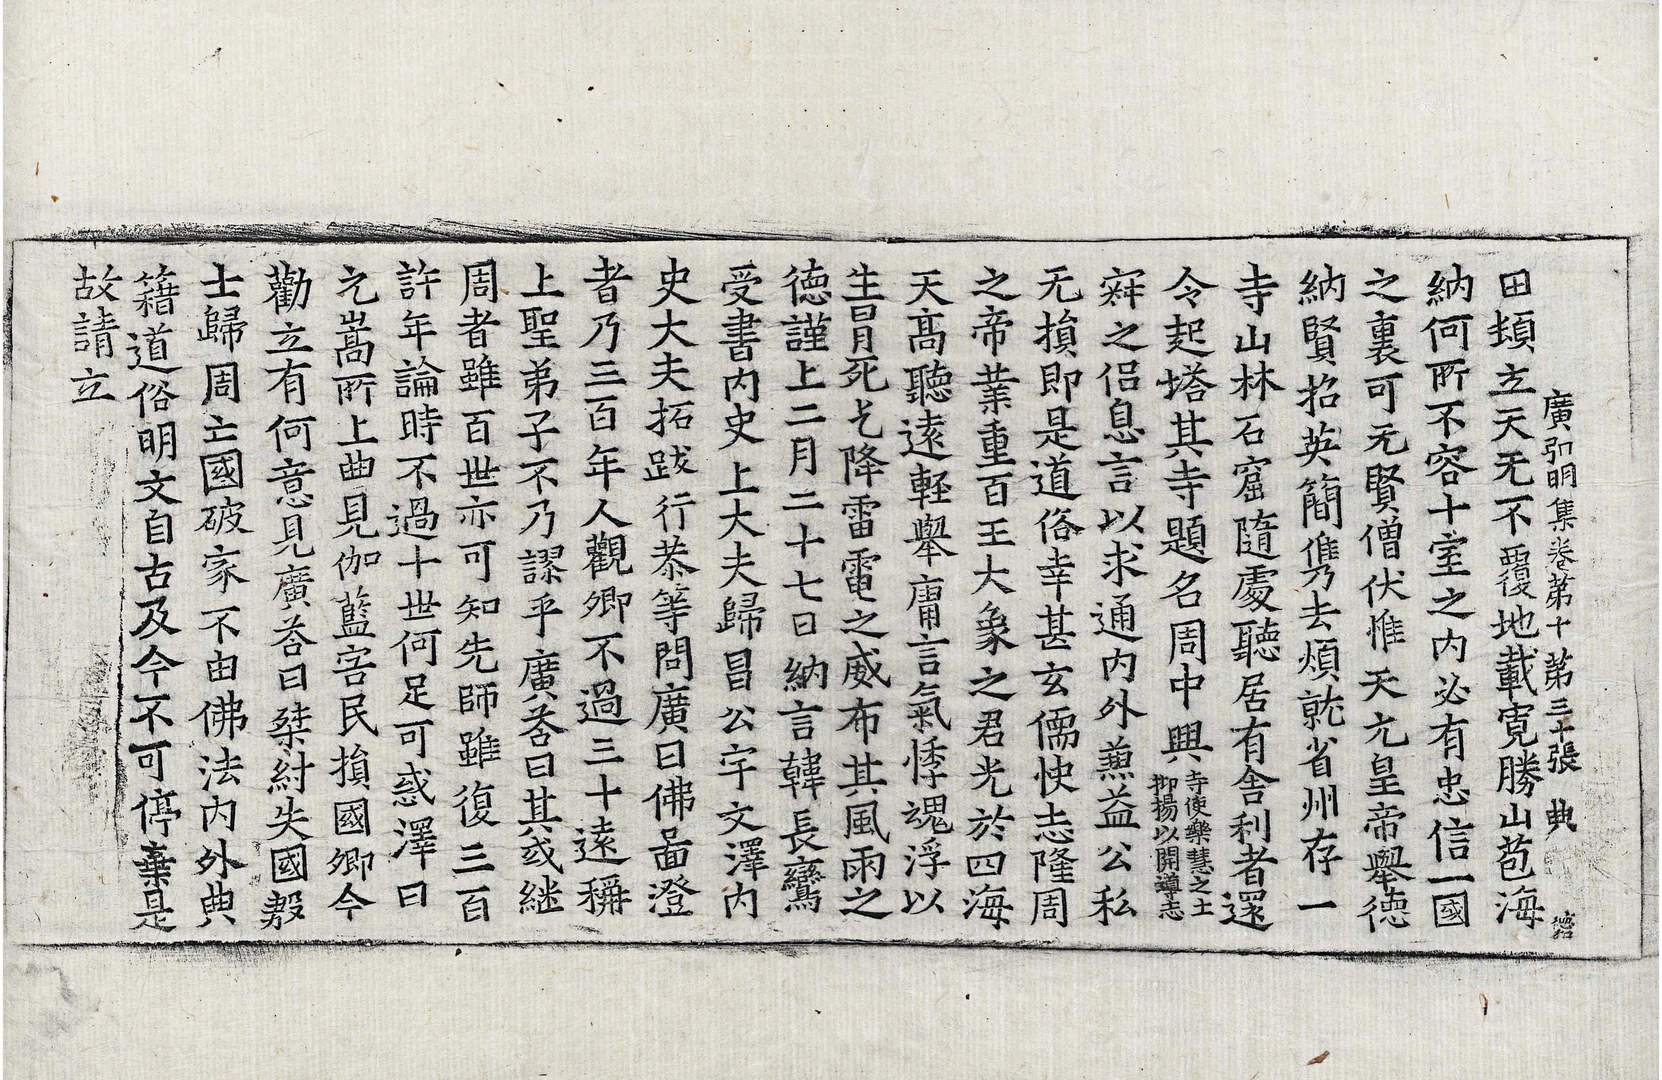 廣弘明集卷第十 第三十張 典
田頖立天无不覆地載寬勝山苞海
納何所不容十室之內必有忠信一國
之裏可无賢僧伏惟天元皇帝舉德
納賢招英簡儁去煩就省州存一
寺山林石窟隨處聽居有舍利者還
令起塔其寺題名周中興寺使樂慧之士抑揚以開導志
寂之侶息言以求通內外兼益公私
无損即是道俗幸甚玄儒快志隆周
之帝業重百王大象之君光於四海
天高聽遠輕舉庸言氣悸魂浮以
生冒死乞降雷電之威布其風雨之
德謹上二月二十七日納言韓長鸞
受書內史上大夫歸昌公宇文澤內
史大夫拓跋行恭等問廣曰佛啚澄
者乃三百年人觀卿不過三十遠稱
上聖弟子不乃謬乎廣荅曰其或継
周者雖百世亦可知先師雖復三百
許年論時不過十世何足可惑澤曰
元嵩所上曲見伽藍害民損國卿今
勸立有何意見廣荅曰桀紂失國殷
士歸周亡國破家不由佛法內外典
籍道俗明文自古及今不可停棄是
故請立